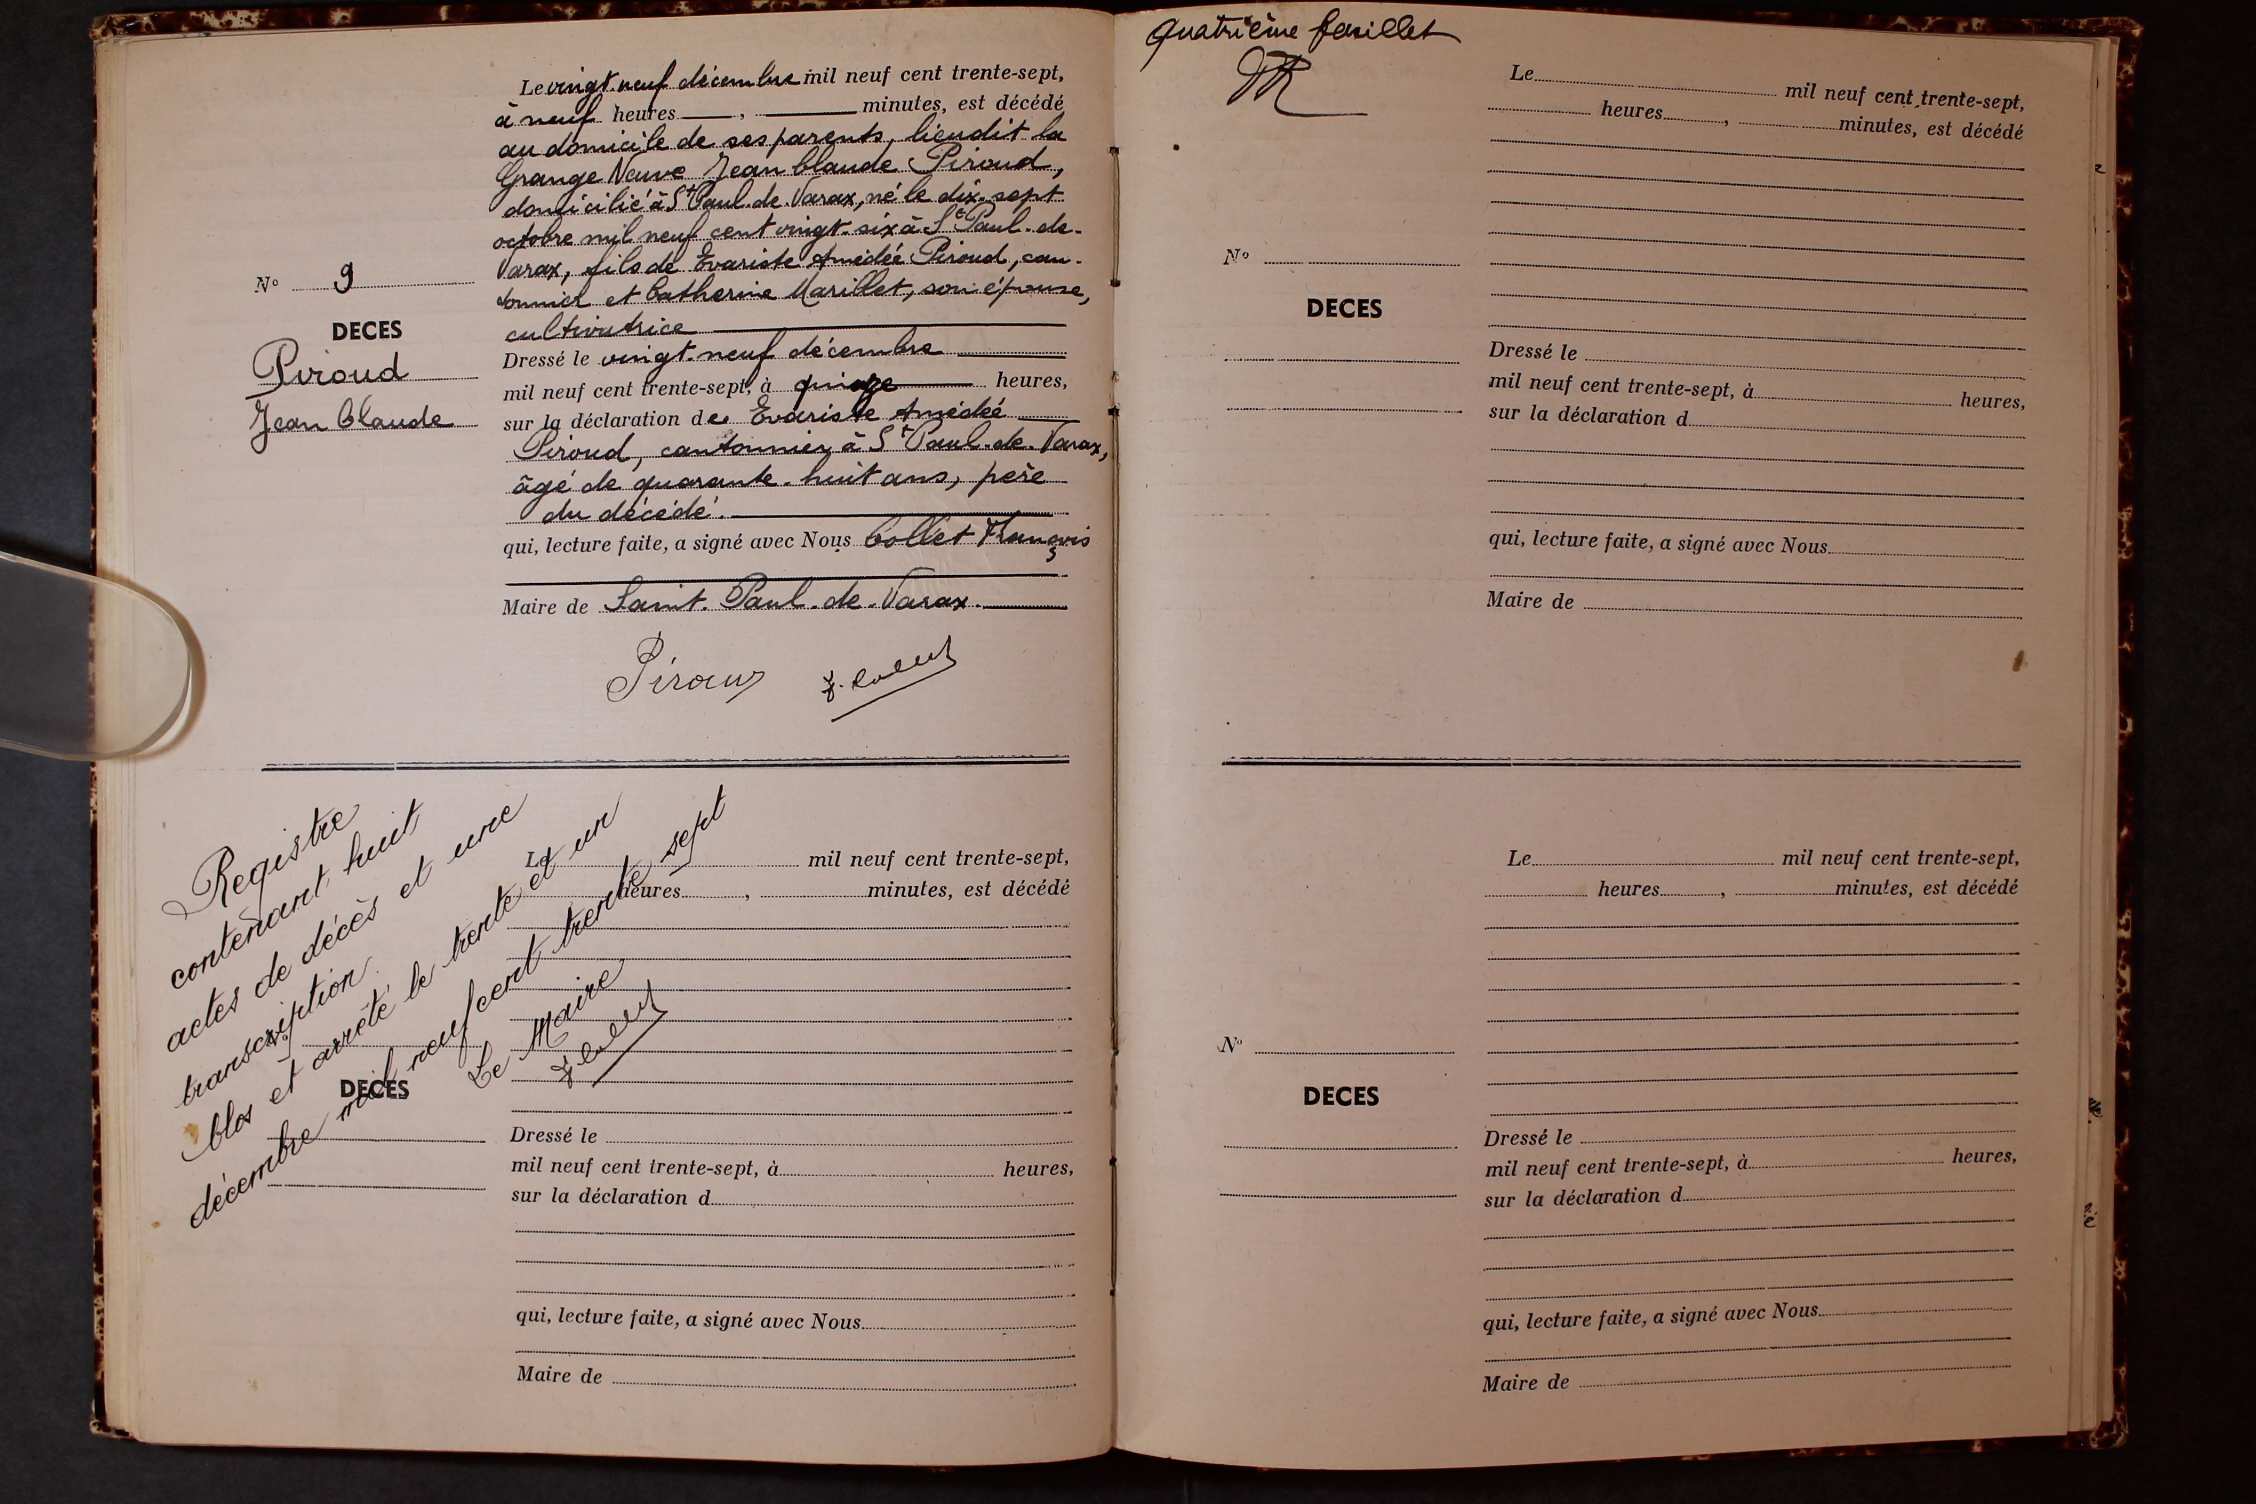 Le vingt-neuf décembre mil neuf cent trente-sept,
à neuf heures , minutes, est décédé
au domicile de ses parents, lieudit la
Grange Neuve Jean Claude Piroud,
domicilié à St Paul-de-Varax, né le dix-sept
octobre mil neuf cent vingt-six à St Paul-de-
Varax, fils de Evariste Amédée Piroud, can-
tonnier et Catherine Marillet, son épouse,
cultivatrice
N° 9
DECES
Piroud
Jean Claude
Dressé le vingt-neuf décembre
mil neuf cent trente-sept, à quinze heures,
sur la déclaration de Evariste Amédée
Piroud, cantonnier à St Paul-de-Varax,
âgé de quarante-huit ans, père
du décédé.
qui, lecture faite, a signé avec Nous Collet François
Maire de Saint-Paul-de-Varax.
Piroud F. Collet
Registre
contenant huit
actes de décès et une
transcription
clos et arrêté le trente et un
décembre mil neuf cent trente sept
Le Maire
F. Collet
Le mil neuf cent trente-sept,
heures , minutes, est décédé
N°
DECES
Dressé le
mil neuf cent trente-sept, à heures,
sur la déclaration d
qui, lecture faite, a signé avec Nous
Maire de
quatrième feuillet
Le mil neuf cent trente-sept,
heures , minutes, est décédé
N°
DECES
Dressé le
mil neuf cent trente-sept, à heures,
sur la déclaration d
qui, lecture faite, a signé avec Nous
Maire de
Le mil neuf cent trente-sept,
heures , minutes, est décédé
N°
DECES
Dressé le
mil neuf cent trente-sept, à heures,
sur la déclaration d
qui, lecture faite, a signé avec Nous
Maire de